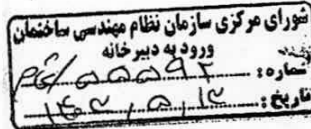 شورای مرکزی سازمان نظام مهندسی ساختمان
ورود به دبیرخانه
شماره: ۵۵۵۹۲/
تاریخ: ۱۴۰۲,۵,۱۴